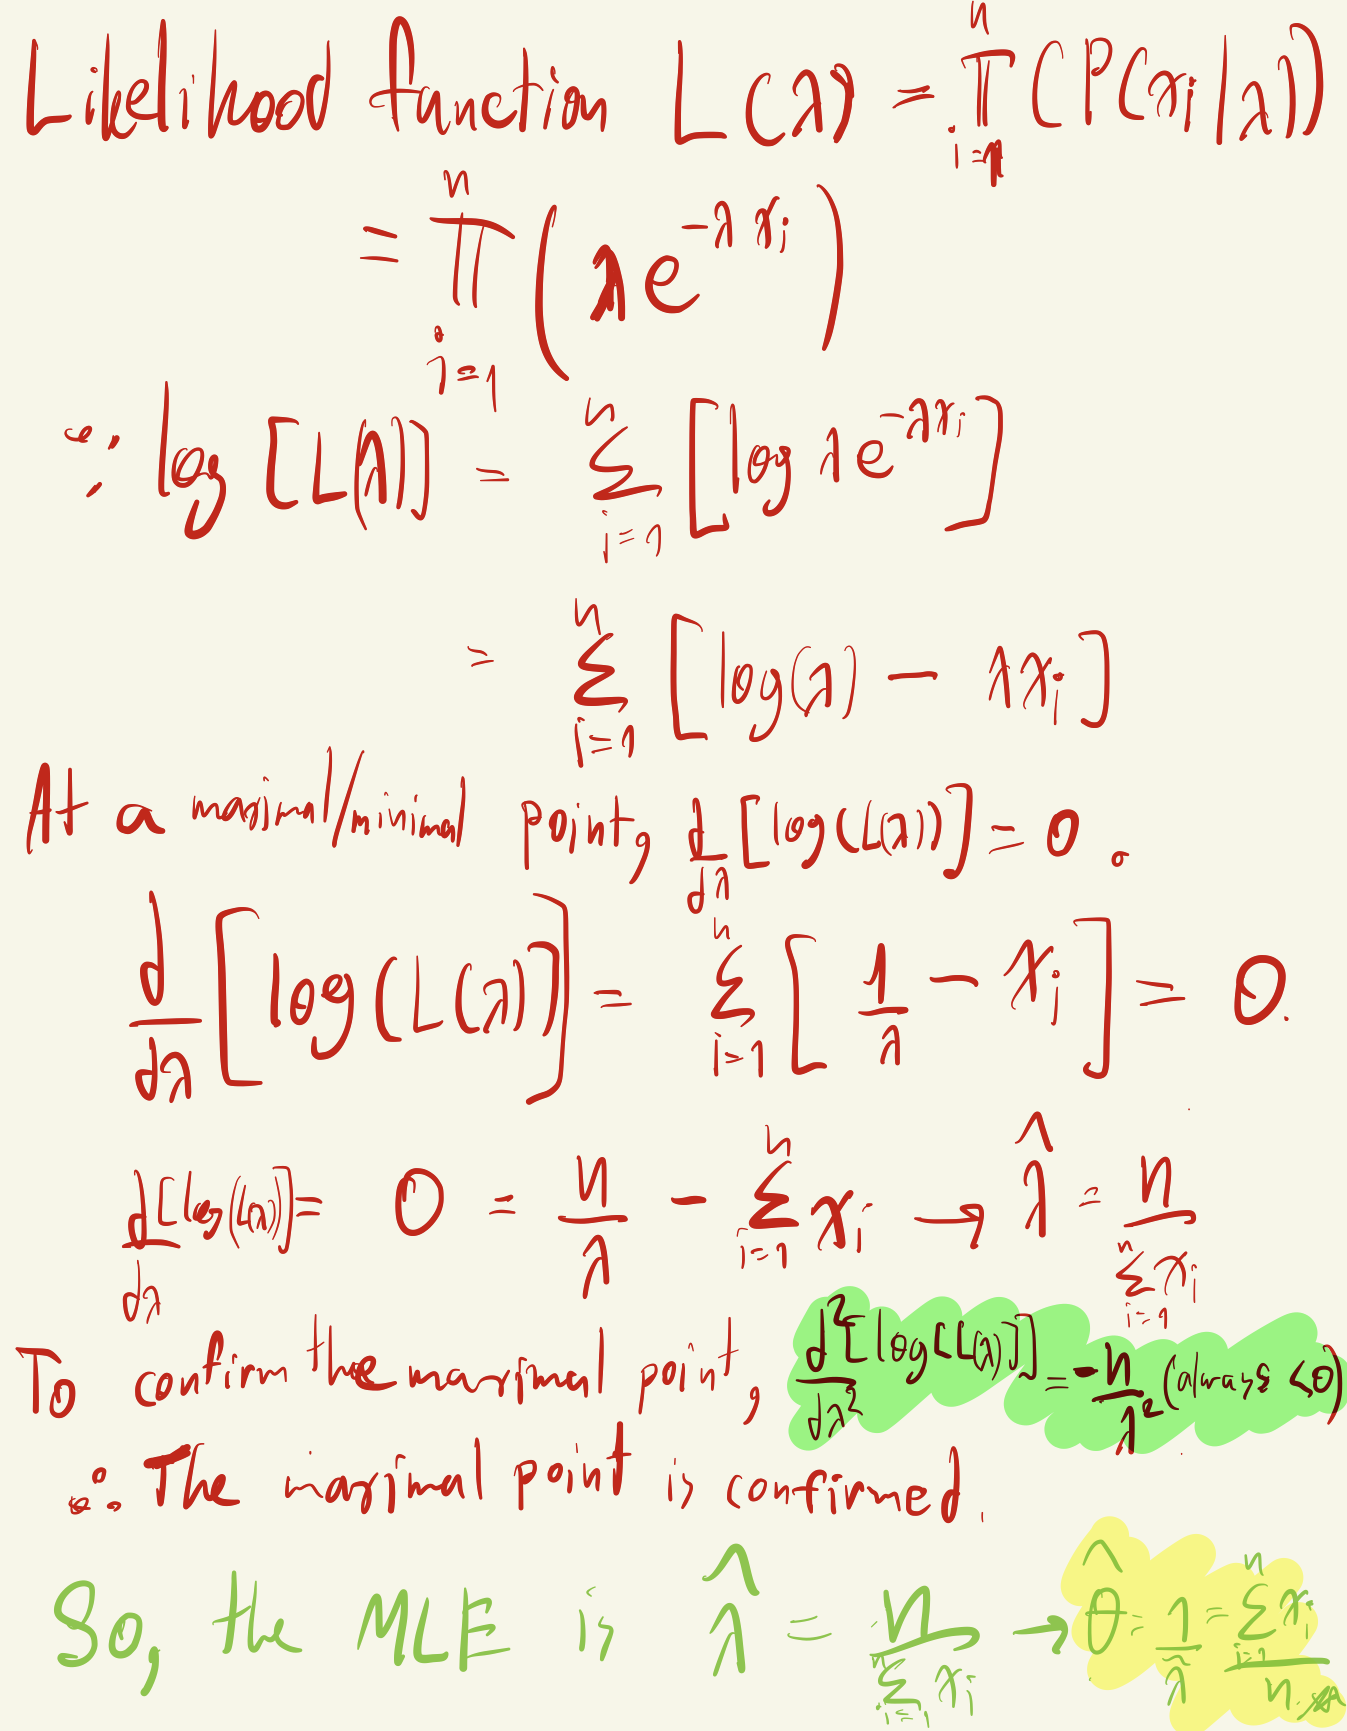 Likelihood function L(λ) = ∏ᵢ₌₁ⁿ (P(xᵢ|λ))
= ∏ᵢ₌₁ⁿ (λe^(-λxᵢ))
∵ log [L(λ)] = Σᵢ₌₁ⁿ [log λe^(-λxᵢ)]
= Σᵢ₌₁ⁿ [log(λ) - λxᵢ]
At a maximal/minimal point, d/dλ [log(L(λ))] = 0.
d/dλ [log(L(λ))] = Σᵢ₌₁ⁿ [1/λ - xᵢ] = 0.
d/dλ [log(L(λ))] = 0 = n/λ - Σᵢ₌₁ⁿ xᵢ → λ̂ = n/Σᵢ₌₁ⁿ xᵢ
To confirm the maximal point, d²/dλ² [log[L(λ)]] = -n/λ² (always <0)
∴ The maximal point is confirmed.
So, the MLE is λ̂ = n/Σᵢ₌₁ⁿ xᵢ → θ̂ = 1/λ̂ = Σᵢ₌₁ⁿ xᵢ/n